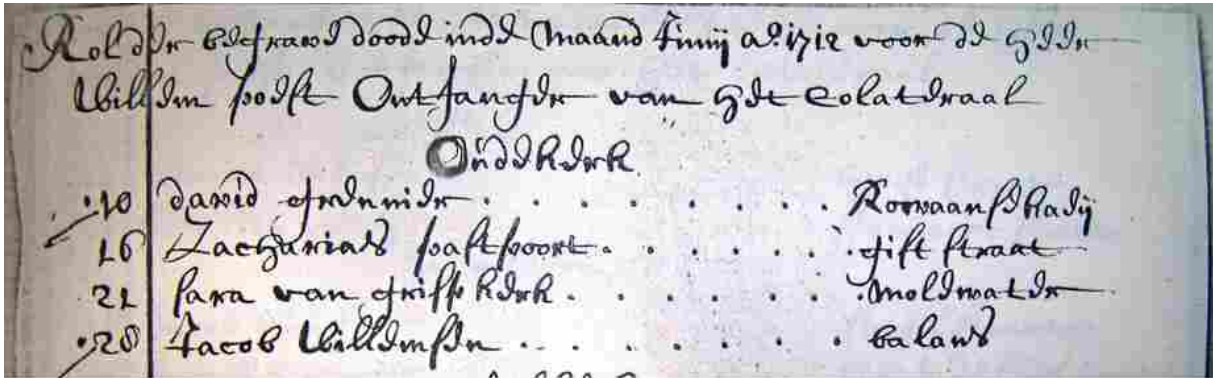 Rolder begrave doode inde Maand Junij ao. 1712 voor de Heer
Willem poest Ontfanger van Het Colateraal
Oudekerk
10 david . . . . . . . . . Rouaansekadij
16 Zacharias paspoort . . . . . . gift straat
21 sara van . . . . . . . molewater
28 Jacob Willemsen . . . . . . . balans